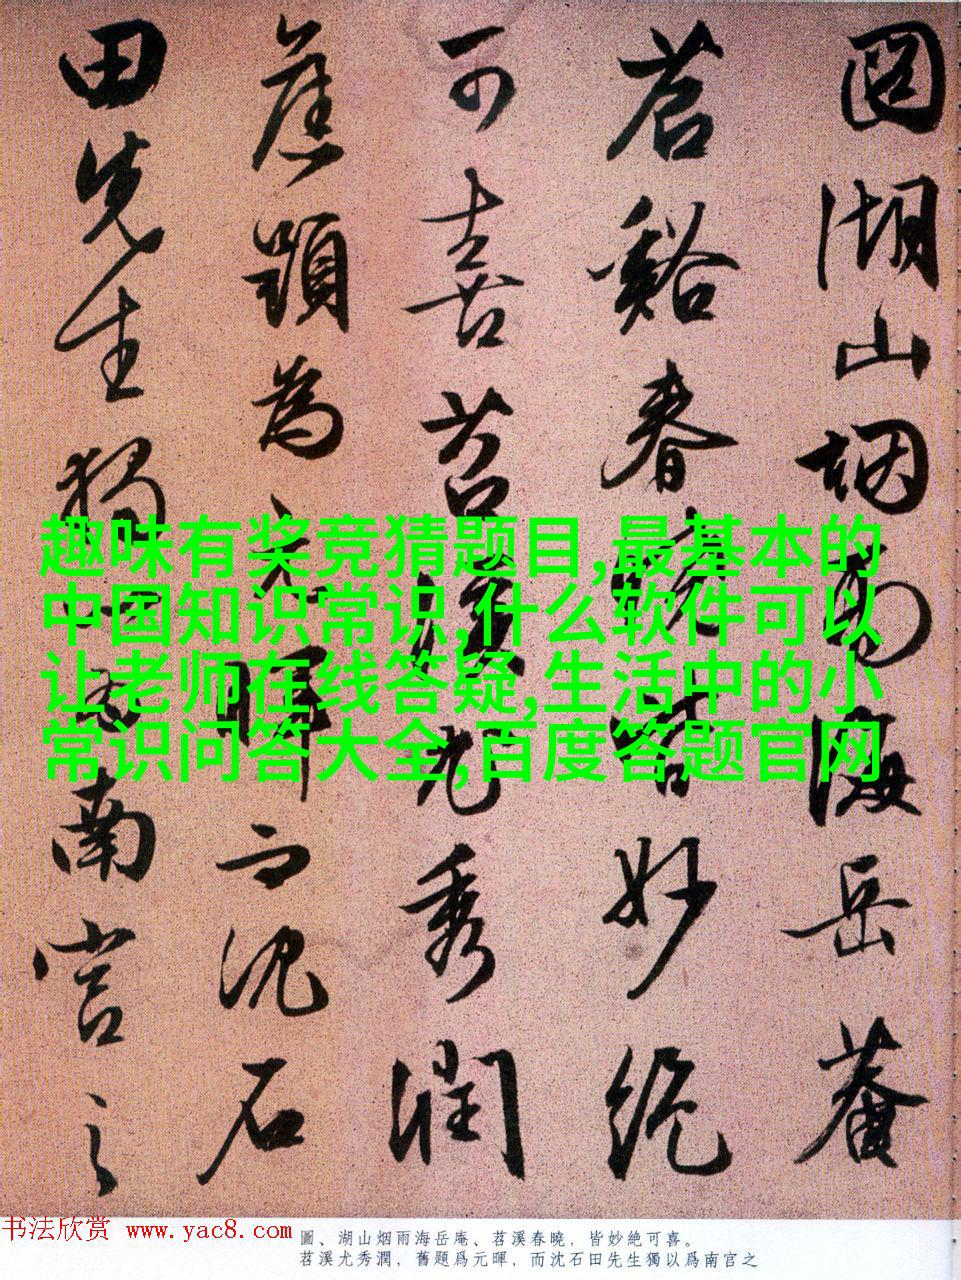 圖湖山烟雨海岳菴
苕谿春曉皆妙絶
可喜苕溪尤秀潤
舊題為元暉而沈石
田先生獨以為南宫之
趣味有奖竞猜题目,最基本的
中国知识常识,什么软件可以
让老师在线答疑,生活中的小
常识问答大全,百度答题官网
书法欣赏 www.yac8.com
圖、湖山烟雨海岳庵、苕溪春曉，皆妙絶可喜。
苕溪尤秀潤，舊題爲元暉，而沈石田先生獨以爲南宫之